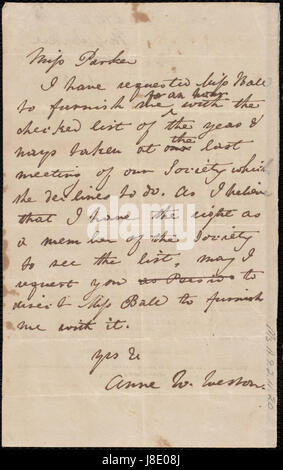 Miss Parker
I have requested Miss Ball
to furnish me with the
checked list of the yeas &
nays taken at our the last
meeting of our Society which
she declines to do. As I believe
that I have the right as
a member of the Society
to see the list, may I
request you to
direct Miss Ball to furnish
me with it.
yrs &c
Anne W. Weston.
alamy stock photo
E8D08J
www.alamy.com